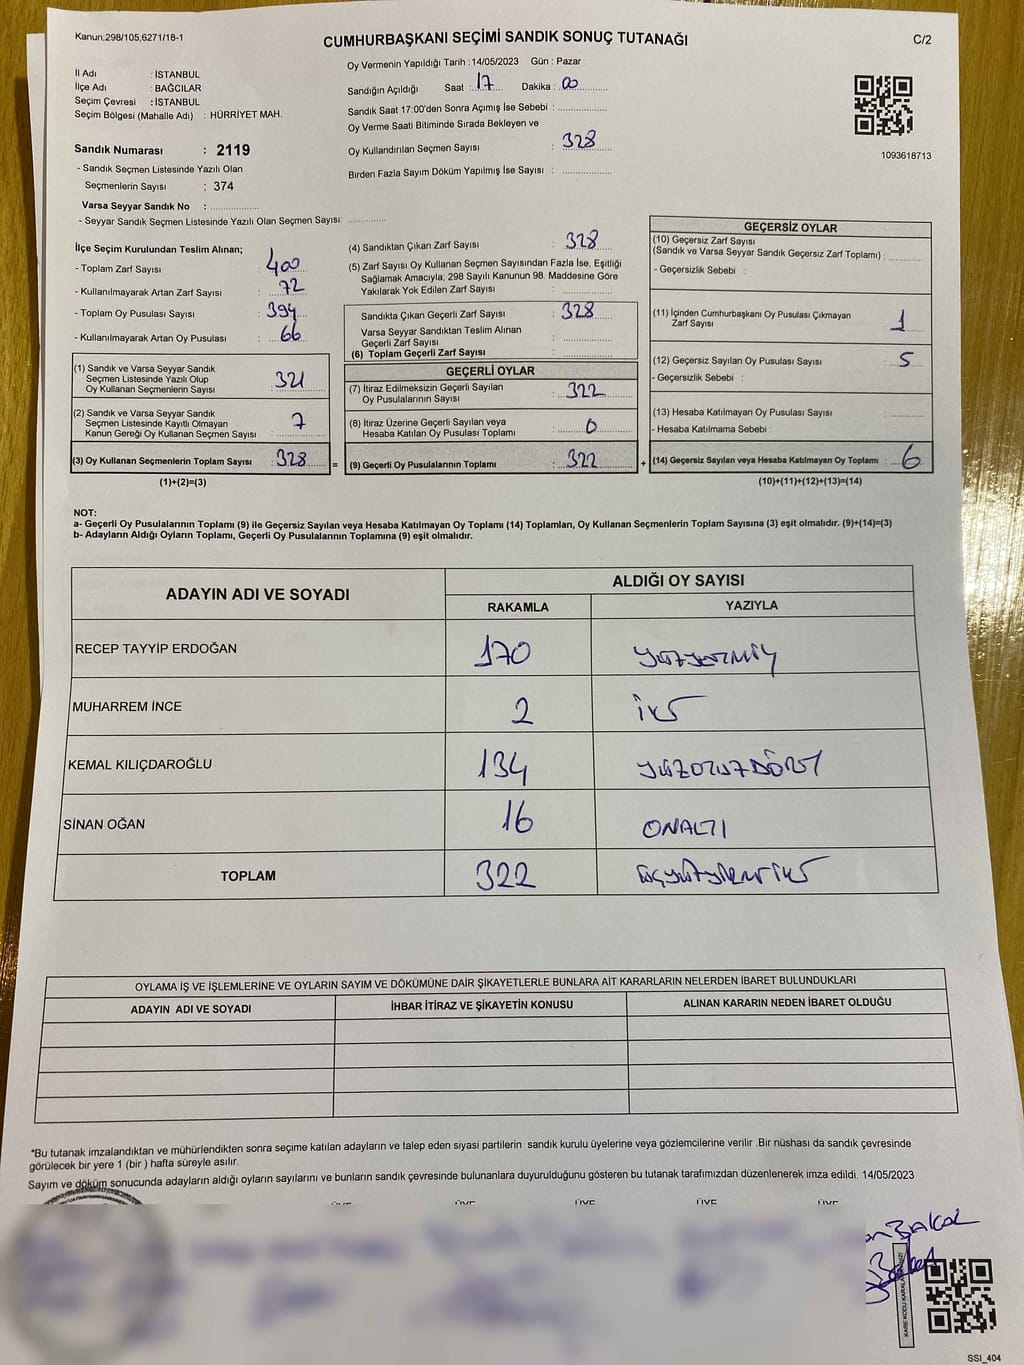 Kanun,298/105,6271/18-1
CUMHURBAŞKANI SEÇİMİ SANDIK SONUÇ TUTANAĞI
C/2
İl Adı : İSTANBUL
İlçe Adı : BAĞCILAR
Seçim Çevresi : İSTANBUL
Seçim Bölgesi (Mahalle Adı) : HÜRRİYET MAH.
Sandık Numarası : 2119
- Sandık Seçmen Listesinde Yazılı Olan
Seçmenlerin Sayısı : 374
Varsa Seyyar Sandık No : ..............
- Seyyar Sandık Seçmen Listesinde Yazılı Olan Seçmen Sayısı: ............
Oy Vermenin Yapıldığı Tarih : 14/05/2023 Gün : Pazar
Sandığın Açıldığı Saat : 17 Dakika : 00
Sandık Saat 17:00'den Sonra Açımış İse Sebebi : ..............
Oy Verme Saati Bitiminde Sırada Bekleyen ve
Oy Kullandırılan Seçmen Sayısı : 328
Birden Fazla Sayım Döküm Yapılmış İse Sayısı : ..............
1093618713
İlçe Seçim Kurulundan Teslim Alınan;
- Toplam Zarf Sayısı : 400
- Kullanılmayarak Artan Zarf Sayısı : 72
- Toplam Oy Pusulası Sayısı : 394
- Kullanılmayarak Artan Oy Pusulası : 66
(1) Sandık ve Varsa Seyyar Sandık
Seçmen Listesinde Yazılı Olup
Oy Kullanan Seçmenlerin Sayısı : 321
(2) Sandık ve Varsa Seyyar Sandık
Seçmen Listesinde Kayıtlı Olmayan
Kanun Gereği Oy Kullanan Seçmen Sayısı : 7
(3) Oy Kullanan Seçmenlerin Toplam Sayısı : 328 =
(1)+(2)=(3)
(4) Sandıktan Çıkan Zarf Sayısı : 328
(5) Zarf Sayısı Oy Kullanan Seçmen Sayısından Fazla İse, Eşitliği
Sağlamak Amacıyla; 298 Sayılı Kanunun 98. Maddesine Göre
Yakılarak Yok Edilen Zarf Sayısı : ..............
Sandıkta Çıkan Geçerli Zarf Sayısı : 328
Varsa Seyyar Sandıktan Teslim Alınan
Geçerli Zarf Sayısı : ..............
(6) Toplam Geçerli Zarf Sayısı : ..............
GEÇERLİ OYLAR
(7) İtiraz Edilmeksizin Geçerli Sayılan
Oy Pusulalarının Sayısı : 322
(8) İtiraz Üzerine Geçerli Sayılan veya
Hesaba Katılan Oy Pusulası Toplamı : 0
(9) Geçerli Oy Pusulalarının Toplamı : 322 +
GEÇERSİZ OYLAR
(10) Geçersiz Zarf Sayısı
(Sandık ve Varsa Seyyar Sandık Geçersiz Zarf Toplamı) : ..........
- Geçersizlik Sebebi :
(11) İçinden Cumhurbaşkanı Oy Pusulası Çıkmayan
Zarf Sayısı 1
(12) Geçersiz Sayılan Oy Pusulası Sayısı : 5
- Geçersizlik Sebebi :
(13) Hesaba Katılmayan Oy Pusulası Sayısı : ..........
- Hesaba Katılmama Sebebi :
(14) Geçersiz Sayılan veya Hesaba Katılmayan Oy Toplamı : 6
(10)+(11)+(12)+(13)=(14)
NOT:
a- Geçerli Oy Pusulalarının Toplamı (9) ile Geçersiz Sayılan veya Hesaba Katılmayan Oy Toplamı (14) Toplamları, Oy Kullanan Seçmenlerin Toplam Sayısına (3) eşit olmalıdır. (9)+(14)=(3)
b- Adayların Aldığı Oyların Toplamı, Geçerli Oy Pusulalarının Toplamına (9) eşit olmalıdır.
ADAYIN ADI VE SOYADI
ALDIĞI OY SAYISI
RAKAMLA YAZIYLA
RECEP TAYYİP ERDOĞAN 170
MUHARREM İNCE 2 iki
KEMAL KILIÇDAROĞLU 134 YÜZOTUZDÖRT
SİNAN OĞAN 16 ONALTI
TOPLAM 322 üçyüzyirmiiki
OYLAMA İŞ VE İŞLEMLERİNE VE OYLARIN SAYIM VE DÖKÜMÜNE DAİR ŞİKAYETLERLE BUNLARA AİT KARARLARIN NELERDEN İBARET BULUNDUKLARI
ADAYIN ADI VE SOYADI İHBAR İTİRAZ VE ŞİKAYETİN KONUSU ALINAN KARARIN NEDEN İBARET OLDUĞU
*Bu tutanak imzalandıktan ve mühürlendikten sonra seçime katılan adayların ve talep eden siyasi partilerin sandık kurulu üyelerine veya gözlemcilerine verilir .Bir nüshası da sandık çevresinde
görülecek bir yere 1 (bir ) hafta süreyle asılır.
Sayım ve döküm sonucunda adayların aldığı oyların sayılarını ve bunların sandık çevresinde bulunanlara duyurulduğunu gösteren bu tutanak tarafımızdan düzenlenerek imza edildi. 14/05/2023
ÜYE ÜYE ÜYE ÜYE ÜYE
SSI_404